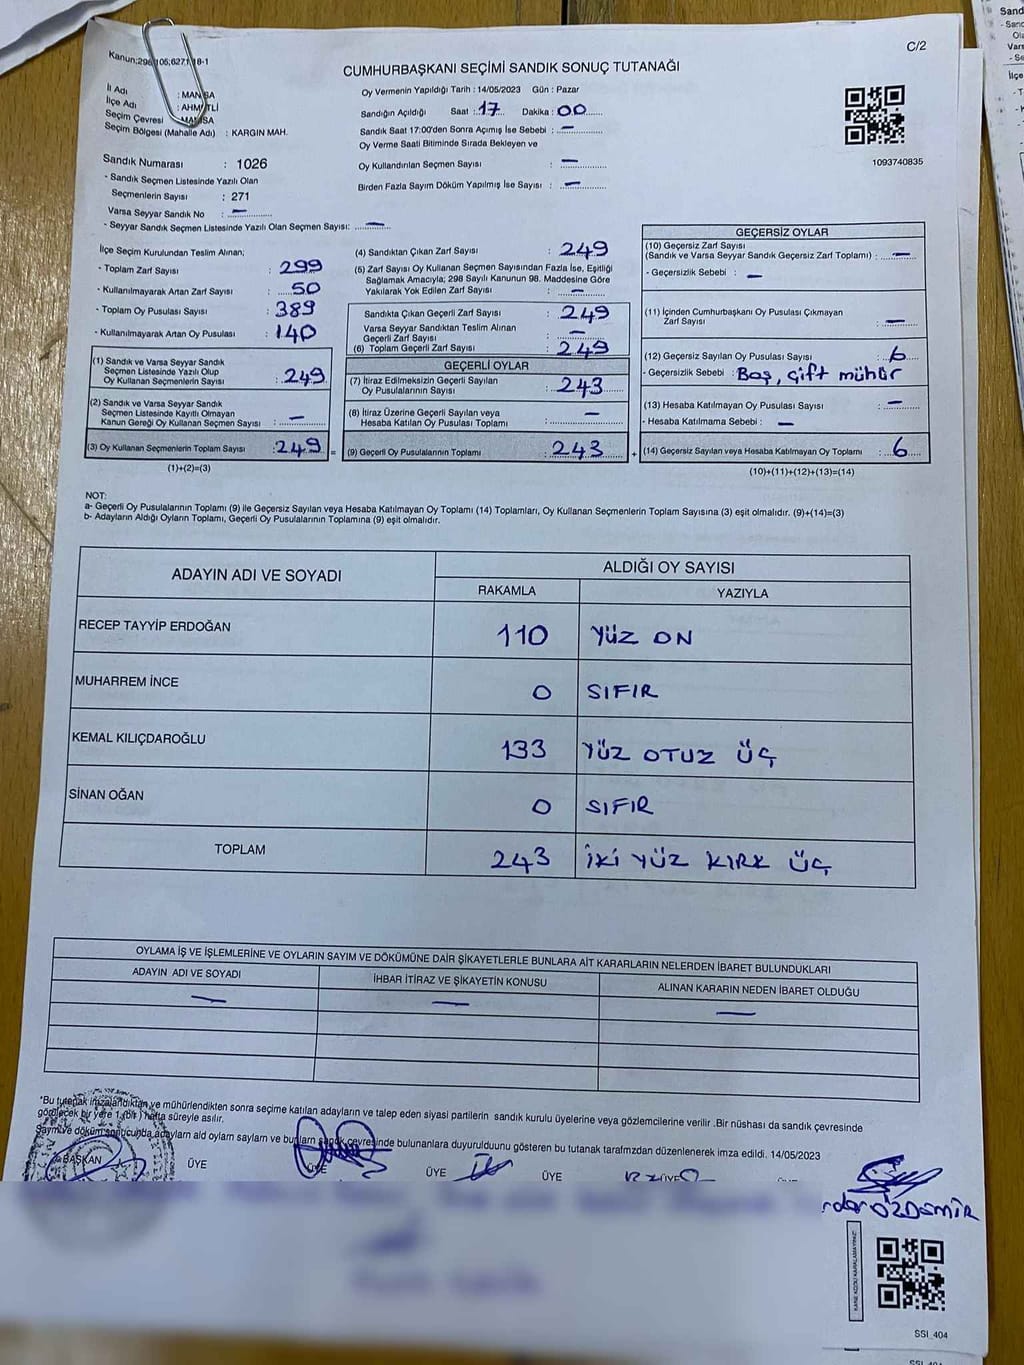 Kanun;298,106;6271,18-1
C/2
CUMHURBAŞKANI SEÇİMİ SANDIK SONUÇ TUTANAĞI
İl Adı : MANİSA
İlçe Adı : AHMETLİ
Seçim Çevresi : MANİSA
Seçim Bölgesi (Mahalle Adı) : KARGIN MAH.
Oy Vermenin Yapıldığı Tarih : 14/05/2023 Gün : Pazar
Sandığın Açıldığı Saat : 17 Dakika : 00
Sandık Saat 17:00'den Sonra Açımış İse Sebebi : —
Oy Verme Saati Bitiminde Sırada Bekleyen ve
Oy Kullandırılan Seçmen Sayısı : —
Birden Fazla Sayım Döküm Yapılmış İse Sayısı : —
1093740835
Sandık Numarası : 1026
- Sandık Seçmen Listesinde Yazılı Olan
Seçmenlerin Sayısı : 271
Varsa Seyyar Sandık No : —
- Seyyar Sandık Seçmen Listesinde Yazılı Olan Seçmen Sayısı: —
İlçe Seçim Kurulundan Teslim Alınan;
- Toplam Zarf Sayısı : 299
- Kullanılmayarak Artan Zarf Sayısı : 50
- Toplam Oy Pusulası Sayısı : 389
- Kullanılmayarak Artan Oy Pusulası : 140
(1) Sandık ve Varsa Seyyar Sandık
Seçmen Listesinde Yazılı Olup
Oy Kullanan Seçmenlerin Sayısı : 249
(2) Sandık ve Varsa Seyyar Sandık
Seçmen Listesinde Kayıtlı Olmayan
Kanun Gereği Oy Kullanan Seçmen Sayısı : —
(3) Oy Kullanan Seçmenlerin Toplam Sayısı : 249
(1)+(2)=(3)
(4) Sandıktan Çıkan Zarf Sayısı : 249
(5) Zarf Sayısı Oy Kullanan Seçmen Sayısından Fazla İse, Eşitliği
Sağlamak Amacıyla; 298 Sayılı Kanunun 98. Maddesine Göre
Yakılarak Yok Edilen Zarf Sayısı : —
Sandıkta Çıkan Geçerli Zarf Sayısı : 249
Varsa Seyyar Sandıktan Teslim Alınan
Geçerli Zarf Sayısı : —
(6) Toplam Geçerli Zarf Sayısı : 249
GEÇERLİ OYLAR
(7) İtiraz Edilmeksizin Geçerli Sayılan
Oy Pusulalarının Sayısı : 243
(8) İtiraz Üzerine Geçerli Sayılan veya
Hesaba Katılan Oy Pusulası Toplamı : —
= (9) Geçerli Oy Pusulalarının Toplamı : 243
GEÇERSİZ OYLAR
(10) Geçersiz Zarf Sayısı
(Sandık ve Varsa Seyyar Sandık Geçersiz Zarf Toplamı) : —
- Geçersizlik Sebebi : —
(11) İçinden Cumhurbaşkanı Oy Pusulası Çıkmayan
Zarf Sayısı : —
(12) Geçersiz Sayılan Oy Pusulası Sayısı : 6
- Geçersizlik Sebebi : Boş, çift mühür
(13) Hesaba Katılmayan Oy Pusulası Sayısı : —
- Hesaba Katılmama Sebebi : —
+ (14) Geçersiz Sayılan veya Hesaba Katılmayan Oy Toplamı : 6
(10)+(11)+(12)+(13)=(14)
NOT:
a- Geçerli Oy Pusulalarının Toplamı (9) ile Geçersiz Sayılan veya Hesaba Katılmayan Oy Toplamı (14) Toplamları, Oy Kullanan Seçmenlerin Toplam Sayısına (3) eşit olmalıdır. (9)+(14)=(3)
b- Adayların Aldığı Oyların Toplamı, Geçerli Oy Pusulalarının Toplamına (9) eşit olmalıdır.
ADAYIN ADI VE SOYADI ALDIĞI OY SAYISI
RAKAMLA YAZIYLA
RECEP TAYYİP ERDOĞAN 110 YÜZ ON
MUHARREM İNCE 0 SIFIR
KEMAL KILIÇDAROĞLU 133 YÜZ OTUZ ÜÇ
SİNAN OĞAN 0 SIFIR
TOPLAM 243 İKİ YÜZ KIRK ÜÇ
OYLAMA İŞ VE İŞLEMLERİNE VE OYLARIN SAYIM VE DÖKÜMÜNE DAİR ŞİKAYETLERLE BUNLARA AİT KARARLARIN NELERDEN İBARET BULUNDUKLARI
ADAYIN ADI VE SOYADI İHBAR İTİRAZ VE ŞİKAYETİN KONUSU ALINAN KARARIN NEDEN İBARET OLDUĞU
— — —
*Bu tutanak imzalandıktan ve mühürlendikten sonra seçime katılan adayların ve talep eden siyasi partilerin sandık kurulu üyelerine veya gözlemcilerine verilir .Bir nüshası da sandık çevresinde
görülecek bir yere 1 (bir) hafta süreyle asılır.
Sayım ve döküm sonucunda adayların ald oyların sayların ve bunların sandık çevresinde bulunanlara duyurulduunu gösteren bu tutanak tarafmzdan düzenlenerek imza edildi. 14/05/2023
BAŞKAN ÜYE ÜYE ÜYE ÜYE ÜYE
ÖZDEMİR
SSI_404